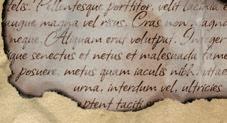 felis. Pellentesque porttitor, velit lacinia
augue magna vel risus. Cras non magna
neque. Aliquam erat volutpat. Integer
que senectus et netus et malesuada fames
posuere, metus quam iaculis nibh, vitae
urna, interdum vel, ultricies
ptent taciti